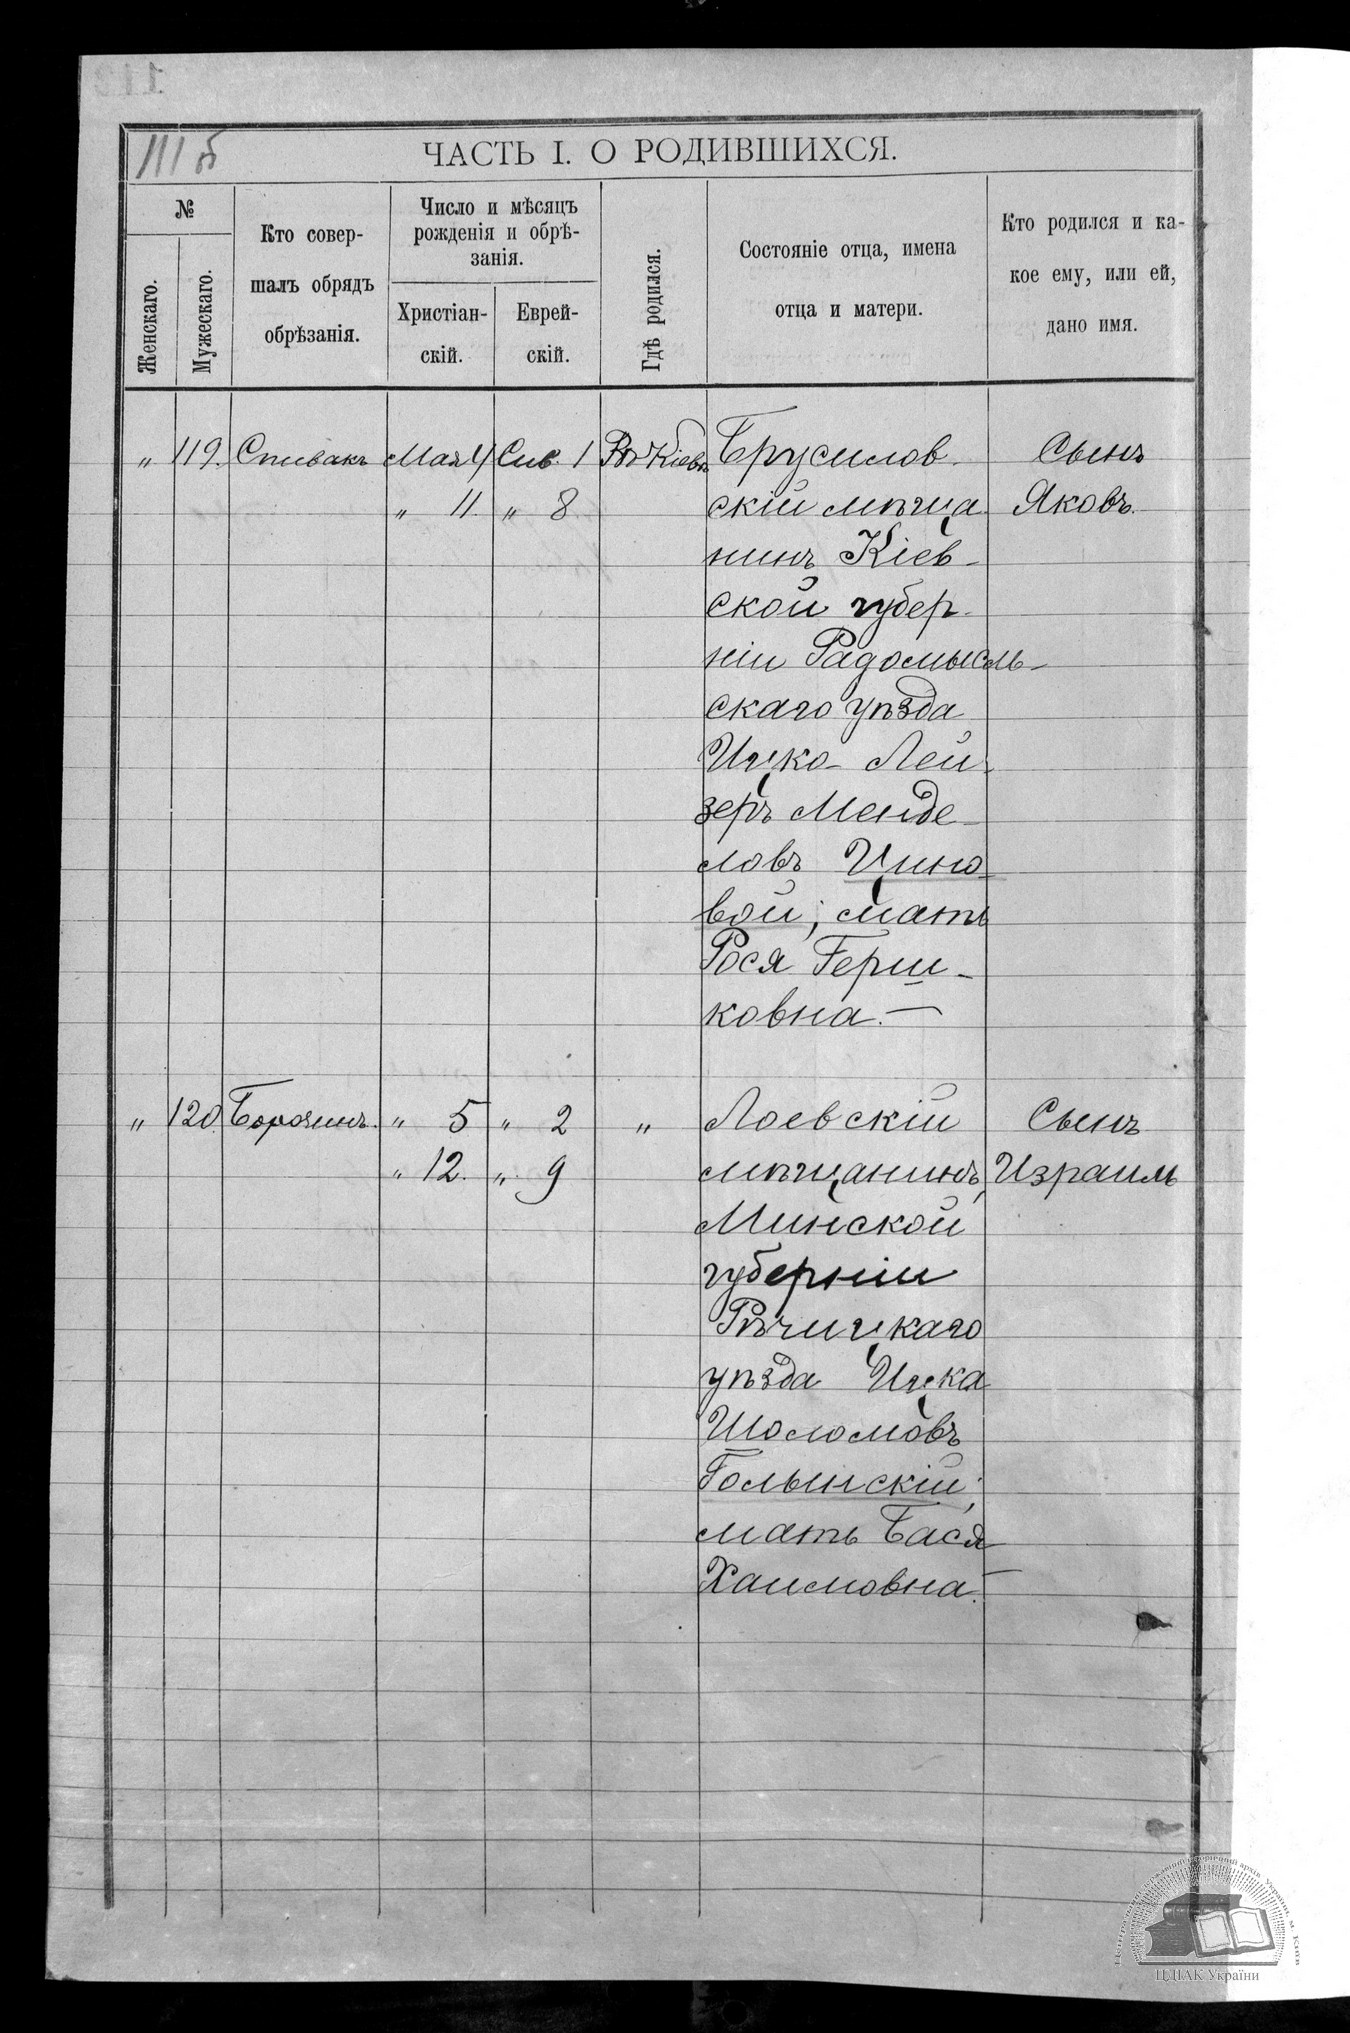 111 б
ЧАСТЬ I. О РОДИВШИХСЯ.
№
Женскаго.
Мужескаго.
Кто совер-
шалъ обрядъ
обрѣзанія.
Число и мѣсяцъ
рожденія и обрѣ-
занія.
Христіан-
скій.
Еврей-
скій.
Гдѣ родился.
Состояніе отца, имена
отца и матери.
Кто родился и ка-
кое ему, или ей,
дано имя.
„ 119. Спивакъ Мая 4 Сив. 1 Въ Кіевѣ Брусилов- Сынъ
„ 11. „ 8 скій мѣща- Яковъ.
нинъ Кіев-
ской губер-
ніи Радомысль-
скаго уѣзда
Ицко-Лей-
зеръ Менде-
ловъ Цино-
вой; мать
Рося Герш-
ковна.—
„ 120. „ 5 „ 2 „ Лоевскій Сынъ
„ 12. „ 9 мѣщанинъ, Израиль
Минской
губерніи
Рѣчицкаго
уѣзда Ицка
Шоломовъ
Голынскій;
мать Бася
Хаимовна.—
ЦДІАК України